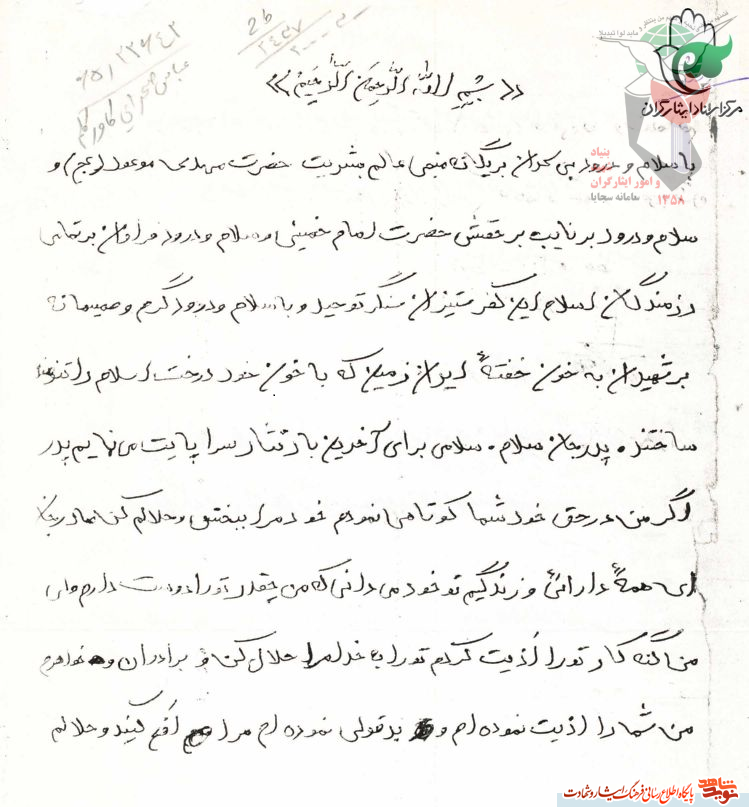 « بسم الله الرحمن الرحیم »
با سلام و درود بی کران بر یگانه منجی عالم بشریت حضرت مهدی موعود (عج) و
سلام و درود بر نایب برحقش حضرت امام خمینی و سلام و درود فراوان بر تمامی
رزمندگان اسلام این کفر ستیزان سنگر توحید و با سلام و درود گرم و صمیمانه
بر شهیدان به خون خفتهٔ ایران زمین که با خون خود درخت اسلام را
ساختند. پدر جان سلام. سلامی برای آخرین بار نثار سرا پایت می نمایم پدر
اگر من در حق خود شما کوتاهی نمودم خود مرا ببخش و حلالم کن مادر جان
ای همهٔ دارائی و زندگیم تو خود می دانی که من چقدر تو را دوست دارم ولی
من گنه کار تو را اذیت کردم تو را به خدا مرا حلال کن و برادران و خواهرم
من شما را اذیت نموده ام و بد قولی نموده ام مرا کنید و حلالم
26
2427
عباس صحرایی
مرکز اسناد ایثارگران
بنیاد شهید
و امور ایثارگران
سامانه سجایا
۱۳۵۸
نوید شاهد
پایگاه اطلاع رسانی فرهنگ ایثار و شهادت